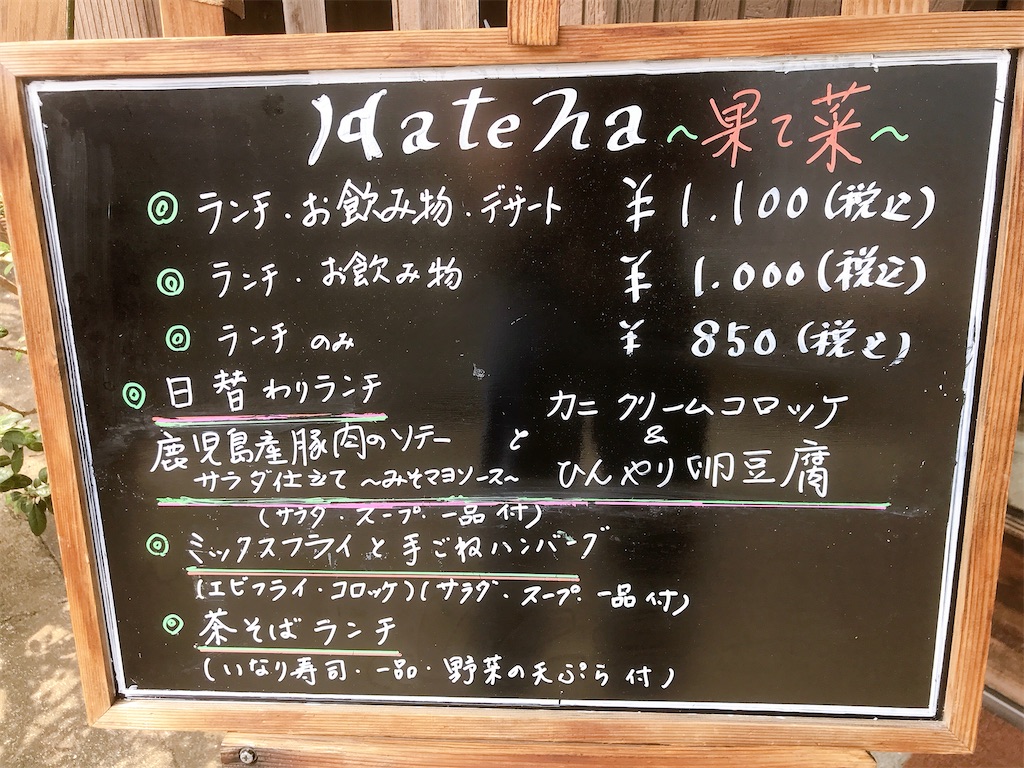 Hateha ～果て菜～
◎ ランチ・お飲み物・デザート ¥1.100(税込)
◎ ランチ・お飲み物 ¥1.000(税込)
◎ ランチのみ ¥850(税込)
◎ 日替わりランチ
鹿児島産豚肉のソテー と カニクリームコロッケ
&
サラダ仕立て ～みそマヨソース～ ひんやり卵豆腐
(サラダ・スープ・一品付)
◎ ミックスフライと手ごねハンバーグ
(エビフライ・コロッケ)(サラダ・スープ・一品付)
◎ 茶そばランチ
(いなり寿司・一品・野菜の天ぷら付)